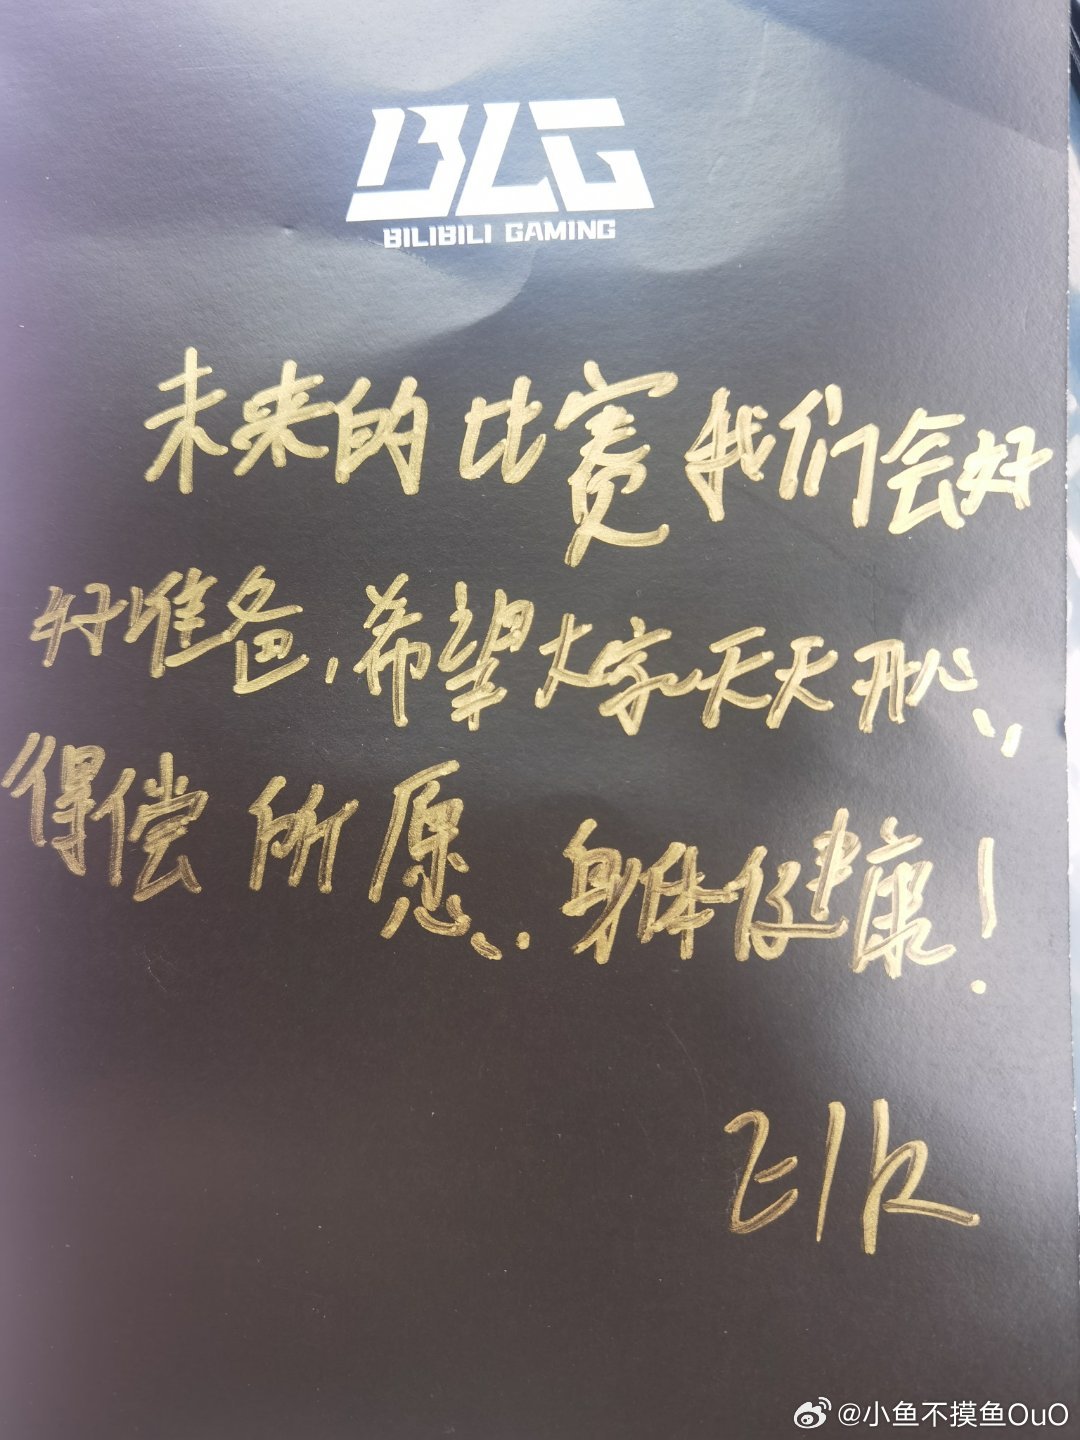 BLG
BILIBILI GAMING
未来的比赛我们会好
好准备,希望大家天天开心、
得偿所愿、身体健康!
Elk
@小鱼不摸鱼OuO